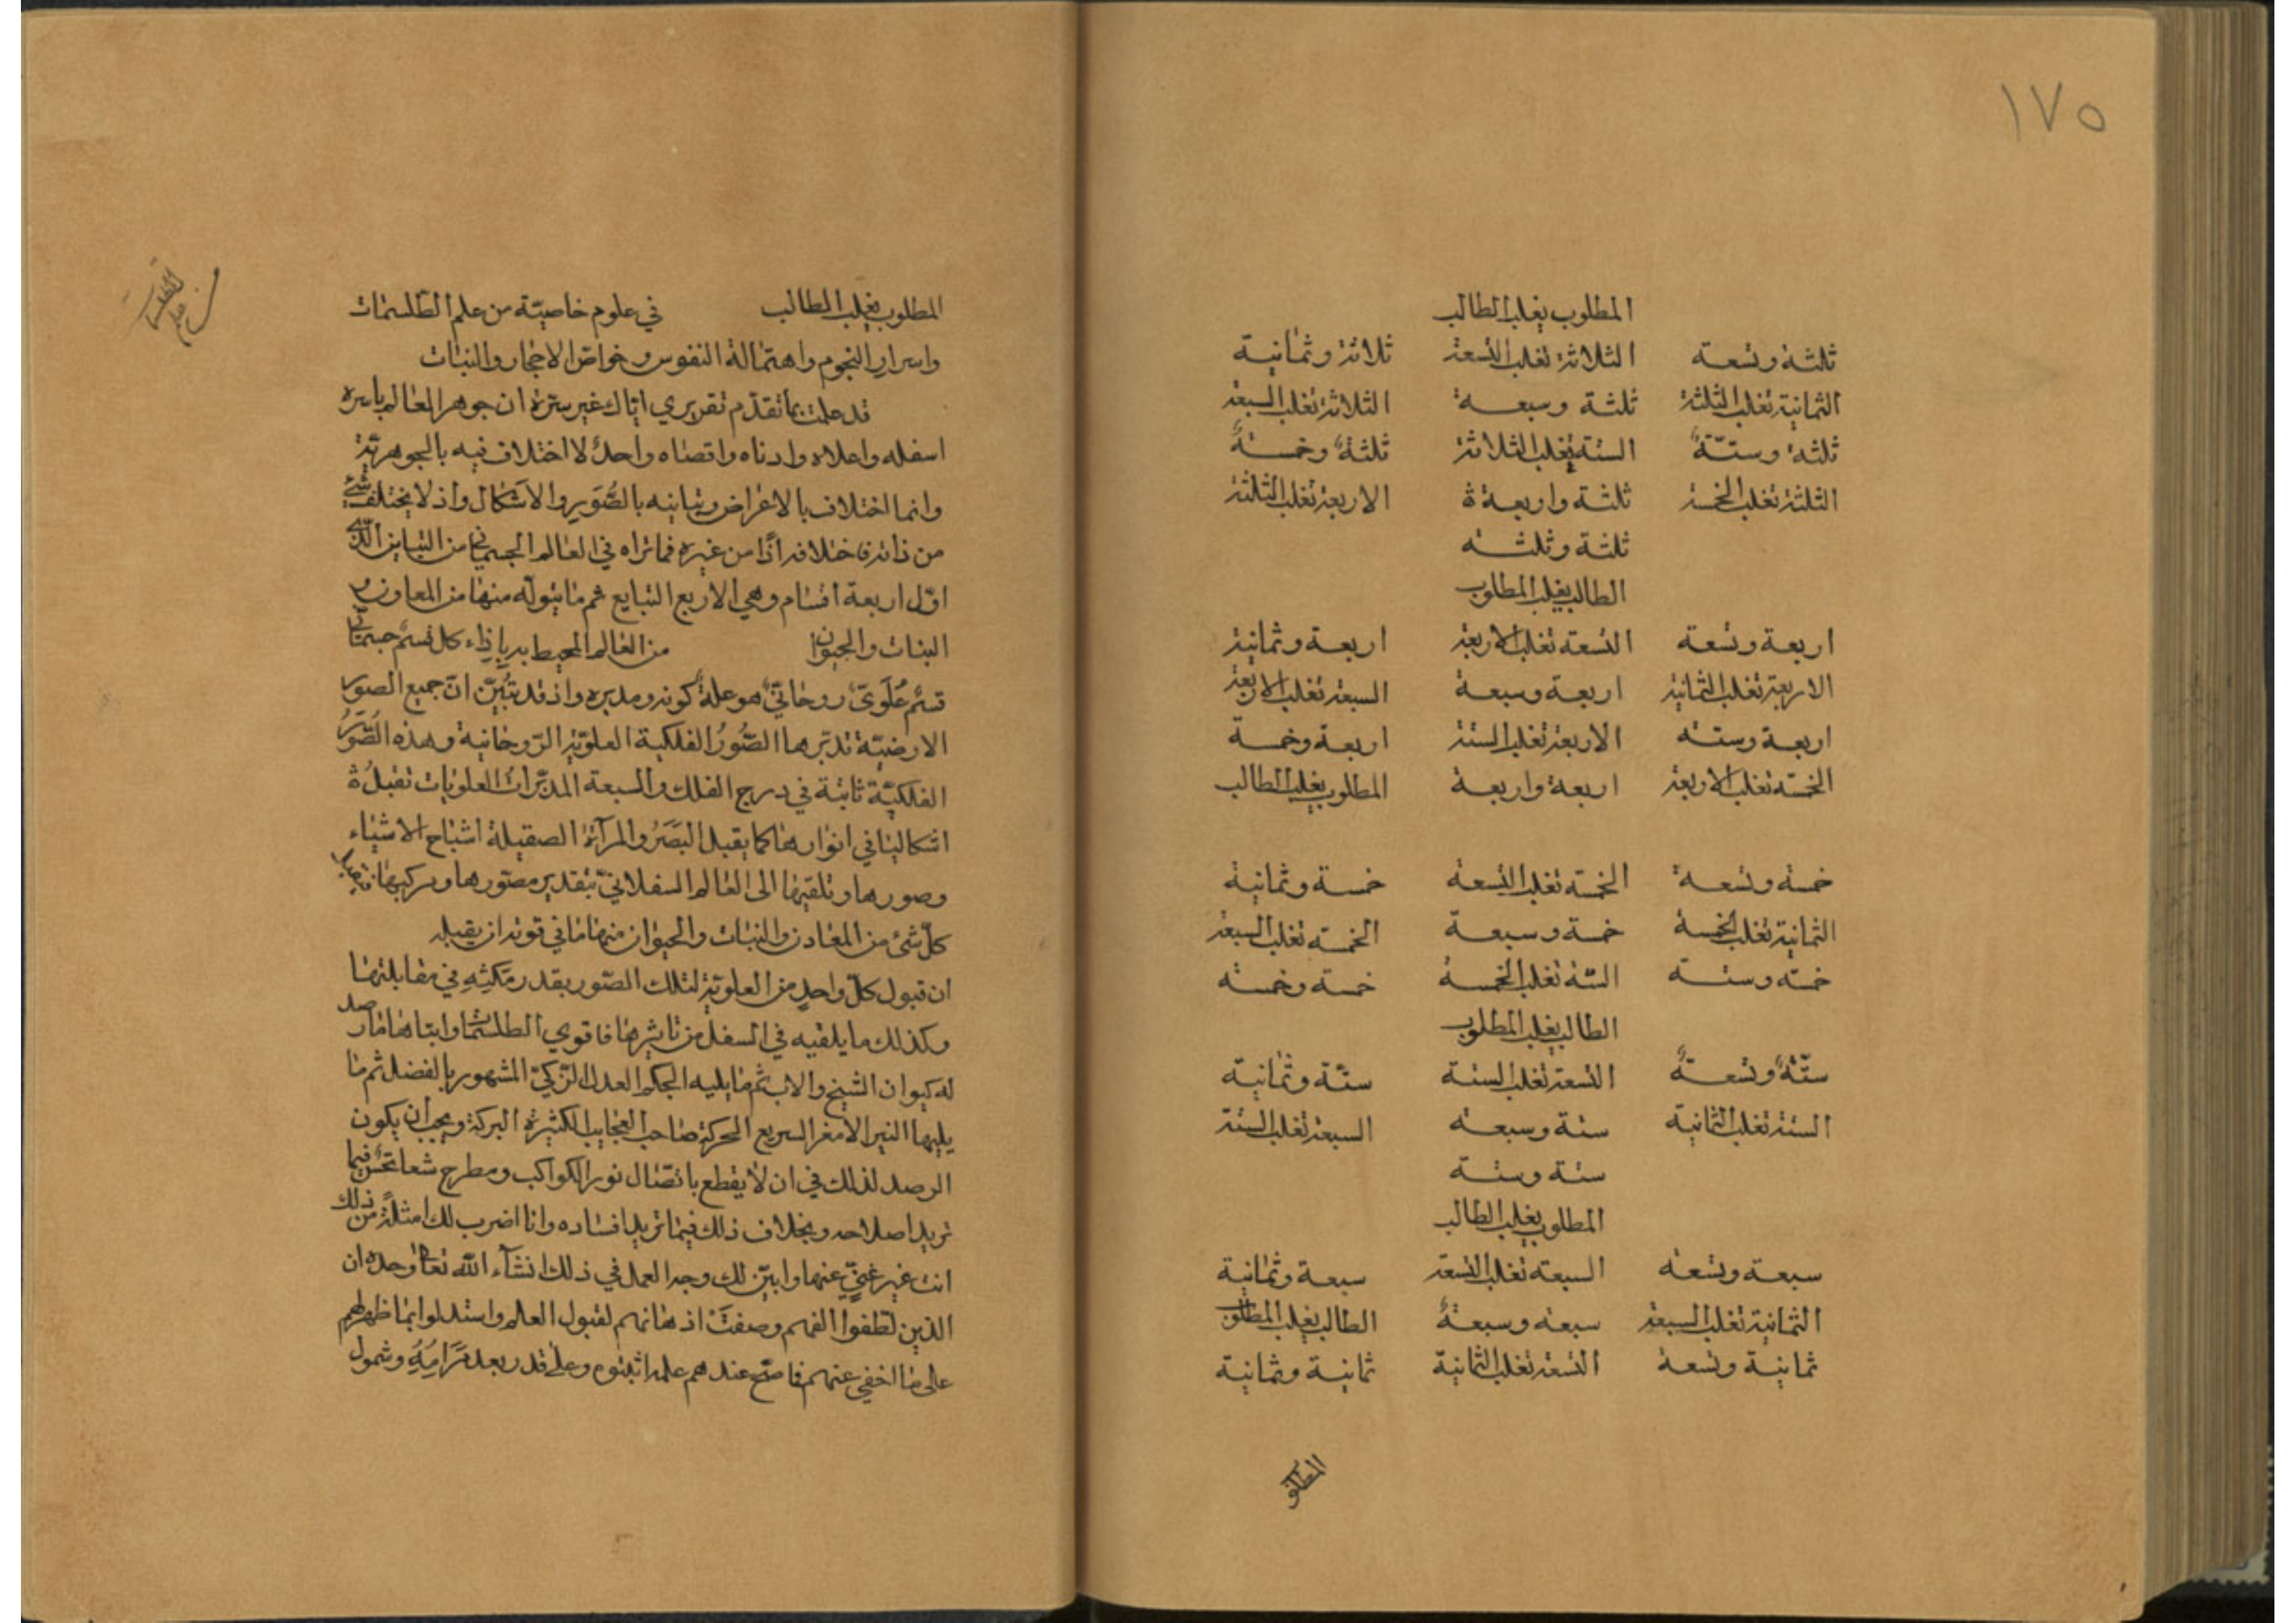 ١٧٥
المطلوب يغلب الطالب
ثلثة وتسعة الثلاثة تغلب التسعة ثلاثة وثمانية
الثمانية تغلب الثلثة ثلثة وسبعة الثلاثة تغلب السبعة
ثلثة وستة الستة يغلب الثلاثة ثلثة وخمسة
الثلثة تغلب الخمسة ثلثة واربعة الاربعة تغلب الثلثة
ثلثة وثلثة
الطالب يغلب المطلوب
اربعة وتسعة التسعة تغلب الاربعة اربعة وثمانية
الاربعة تغلب الثمانية اربعة وسبعة السبعة تغلب الاربعة
اربعة وستة الاربعة تغلب الستة اربعة وخمسة
الخمسة تغلب الاربعة اربعة واربعة المطلوب يغلب الطالب
خمسة وتسعة الخمسة تغلب التسعة خمسة وثمانية
الثمانية تغلب الخمسة خمسة وسبعة الخمسة تغلب السبعة
خمسة وستة الستة تغلب الخمسة خمسة وخمسة
الطالب يغلب المطلوب
ستة وتسعة التسعة تغلب الستة ستة وثمانية
الستة تغلب الثمانية ستة وسبعة السبعة تغلب الستة
ستة وستة
المطلوب يغلب الطالب
سبعة وتسعة السبعة تغلب التسعة سبعة وثمانية
الثمانية تغلب السبعة سبعة وسبعة الطالب يغلب المطلوب
ثمانية وتسعة التسعة تغلب الثمانية ثمانية وثمانية
المطلو
المطلوب يغلب الطالب في علوم خاصيّة من علم الطلسمات
واسرار النجوم واهتمالة النفوس وخواص الاحجار والنبات
قد علمت بما تقدّم تقريري اياك غير سترة ان جوهر العالم باسره
اسفله واعلاه وادناه واقصاه واحدٌ لا اختلاف فيه بالجوهريّة
وانما اختلاف بالاعراض وتباينه بالصُّوَر والاشكال واذ لا يختلف شئ
من ذاته فاختلافه اذًا من غيره فما تراه في العالم الجسماني من التباين الذي
اوّل اربعة اقسام وهي الاربع التبايع ثم ما يتولّه منها من المعاون و
النبات والحيوان من العالم المحيط به بإذاء كل قسم جسماني
قسمٌ عُلويٌّ روحانيٌّ هو علة كونه ومدبره واذ قد تبيّن انّ جميع الصور
الارضيّة تدبّرها الصُّوَرُ الفلكية العلويّة الرّوحانية وهذه الصُّوَرُ
الفلكيّة ثابتة في درج الفلك والسبعة المدبّرات العلويات تقبلُ
اشكالها في انوارها كما يقبل البَصَرُ والمرآة الصقيلة اشباح الاشياء
وصورها وتلقيها الى العالم السفلانيّ بتقدير مصوّرها ومركبها فيقبل
كلّ شئ من المعادن والنبات والحيوان منها ما في قوته ان يقبله
ان قبول كلّ واحدٍ من العلويّة لتلك الصّور بقدر مَكثِهِ في مقابلتها
وكذلك ما يلقيه في السفل من تاثيرها فاقوي الطلسمات وابتاها ما رصد
له كيوان الشيخ والاب ثم ما يليه الحكم العدل الزّكيّ المشهور بالفضل ثم ما
يليها النير الامغر السريع الحركة صاحب العجايب الكثيرة البركة ويجب ان يكون
الرصد لذلك في ان لا يقطع باتّصال نور الكواكب ومطرح شعاع نحس فيما
تريد اصلاحه وبخلاف ذلك فيما تريد افساده وانا اضرب لك امثلة من ذلك
انت غير غنيٍّ عنها وابيّن لك وجه العمل في ذلك انشآء اللّه تعالى وحده ان
الذين لطّفوا الفهم وصفَتْ اذهانهم لقبول العلم واستدلوا بما ظهر لهم
على ما اخفي عنهم فاصّح عندهم علمه اثبتوه وعلى قدر بعد مَرَامِهِ وشمول